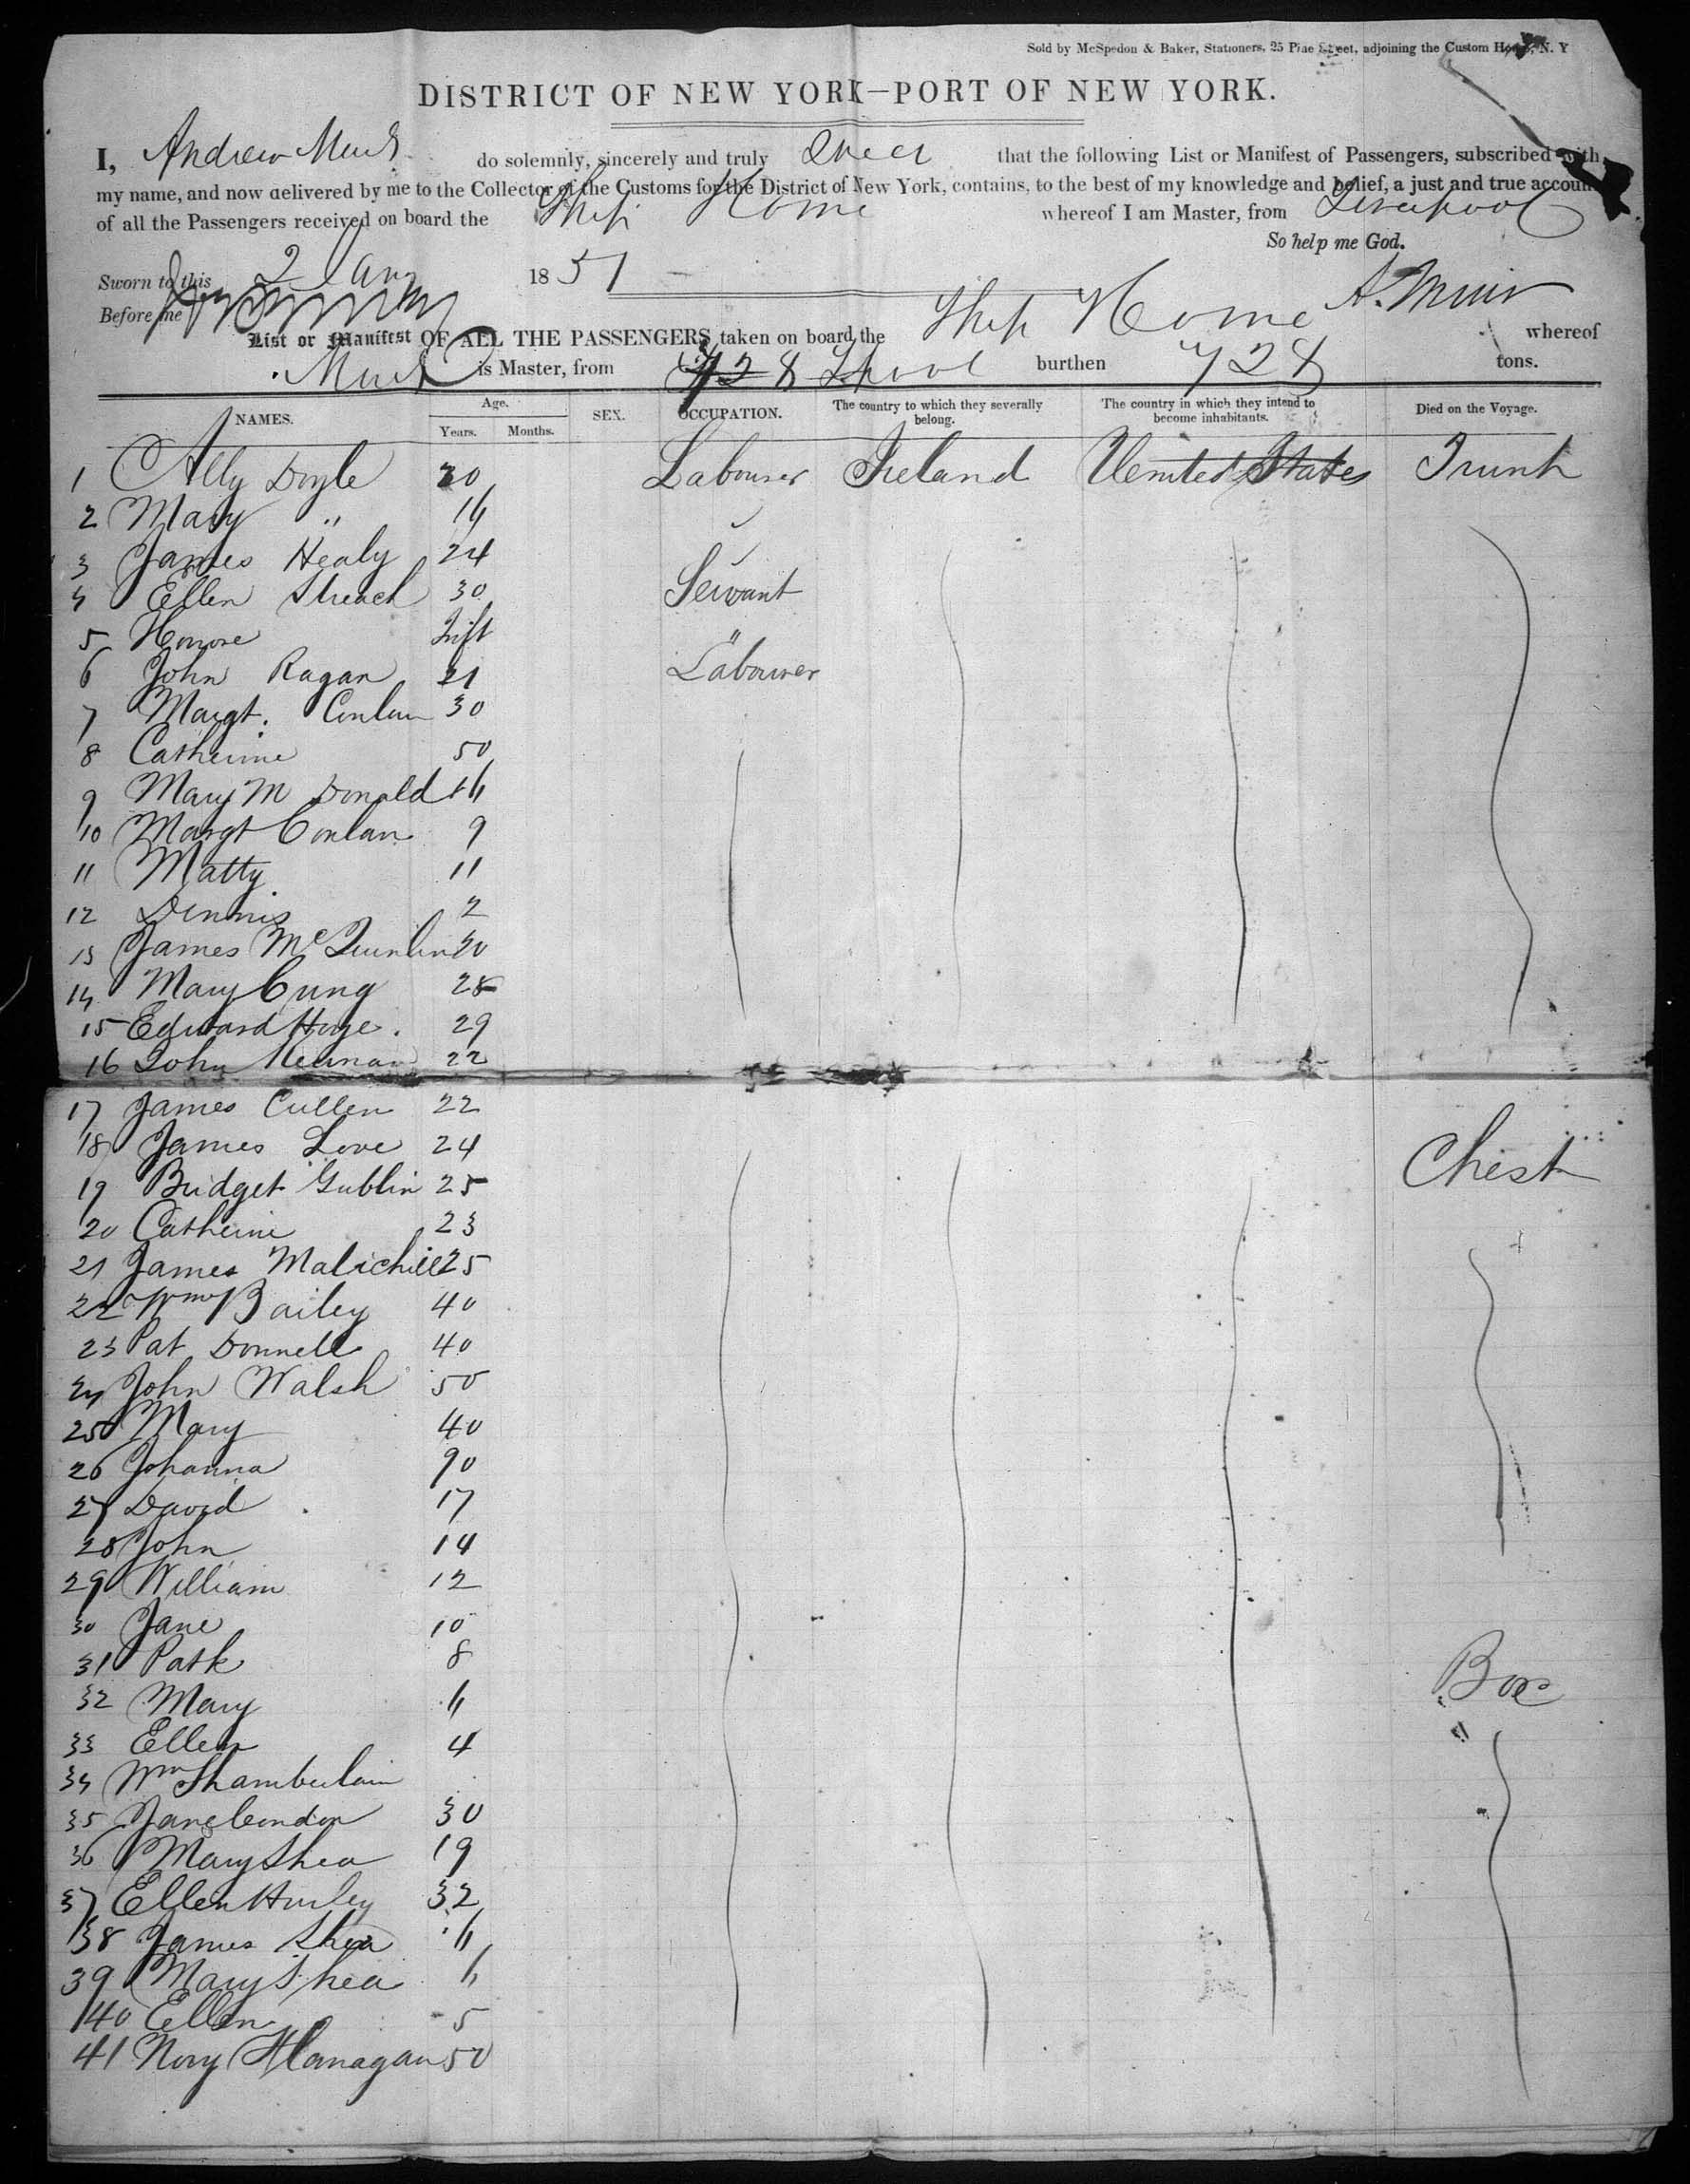 Sold by McSpedon & Baker, Stationers, 25 Pine Street, adjoining the Custom House, N. Y
DISTRICT OF NEW YORK—PORT OF NEW YORK.
I, Andrew Muir do solemnly, sincerely and truly Swear that the following List or Manifest of Passengers, subscribed with
my name, and now delivered by me to the Collector of the Customs for the District of New York, contains, to the best of my knowledge and belief, a just and true account
of all the Passengers received on board the Ship Home whereof I am Master, from Liverpool
So help me God.
Sworn to this 2 Jany 1851
A. Muir
Before me
List or Manifest OF ALL THE PASSENGERS taken on board the Ship Home whereof
Muir is Master, from Lpool burthen 728 tons.
NAMES. Age. Years. Months. SEX. OCCUPATION. The country to which they severally belong. The country in which they intend to become inhabitants. Died on the Voyage.
1 Ally Doyle 20 Labourer Ireland United States Trunk
2 Mary " 16
3 James Healy 24
4 Ellen Streach 30 Servant
5 Honore Inft "
6 John Ragan 21 Labourer
7 Margt. Conlan 30
8 Catherine 50
9 Mary M Donald 16
10 Margt Conlan 9
11 Matty 11
12 Dennis 2
13 James McQuinlin 20
14 Mary Cung 25
15 Edward Hoye. 29
16 John 22
17 James Cullen 22
18 James Love 24 Chest
19 Bridget Gublin 25
20 Catherine 23
21 James Malichill 25
22 Wm Bailey 40
23 Pat Donnell 40
24 John Walsh 50
25 Mary 40
26 Johanna 90
27 David 17
28 John 14
29 William 12
30 Jane 10
31 Patk 8
32 Mary 6 Box
33 Ellen 4 "
34 Wm Shamberlain
35 Jane Condon 30
36 Mary Shea 19
37 Ellen Hurley 32
38 James Shea 6
39 Mary Shea 6
40 Ellen 5
41 Nory Flanagan 50